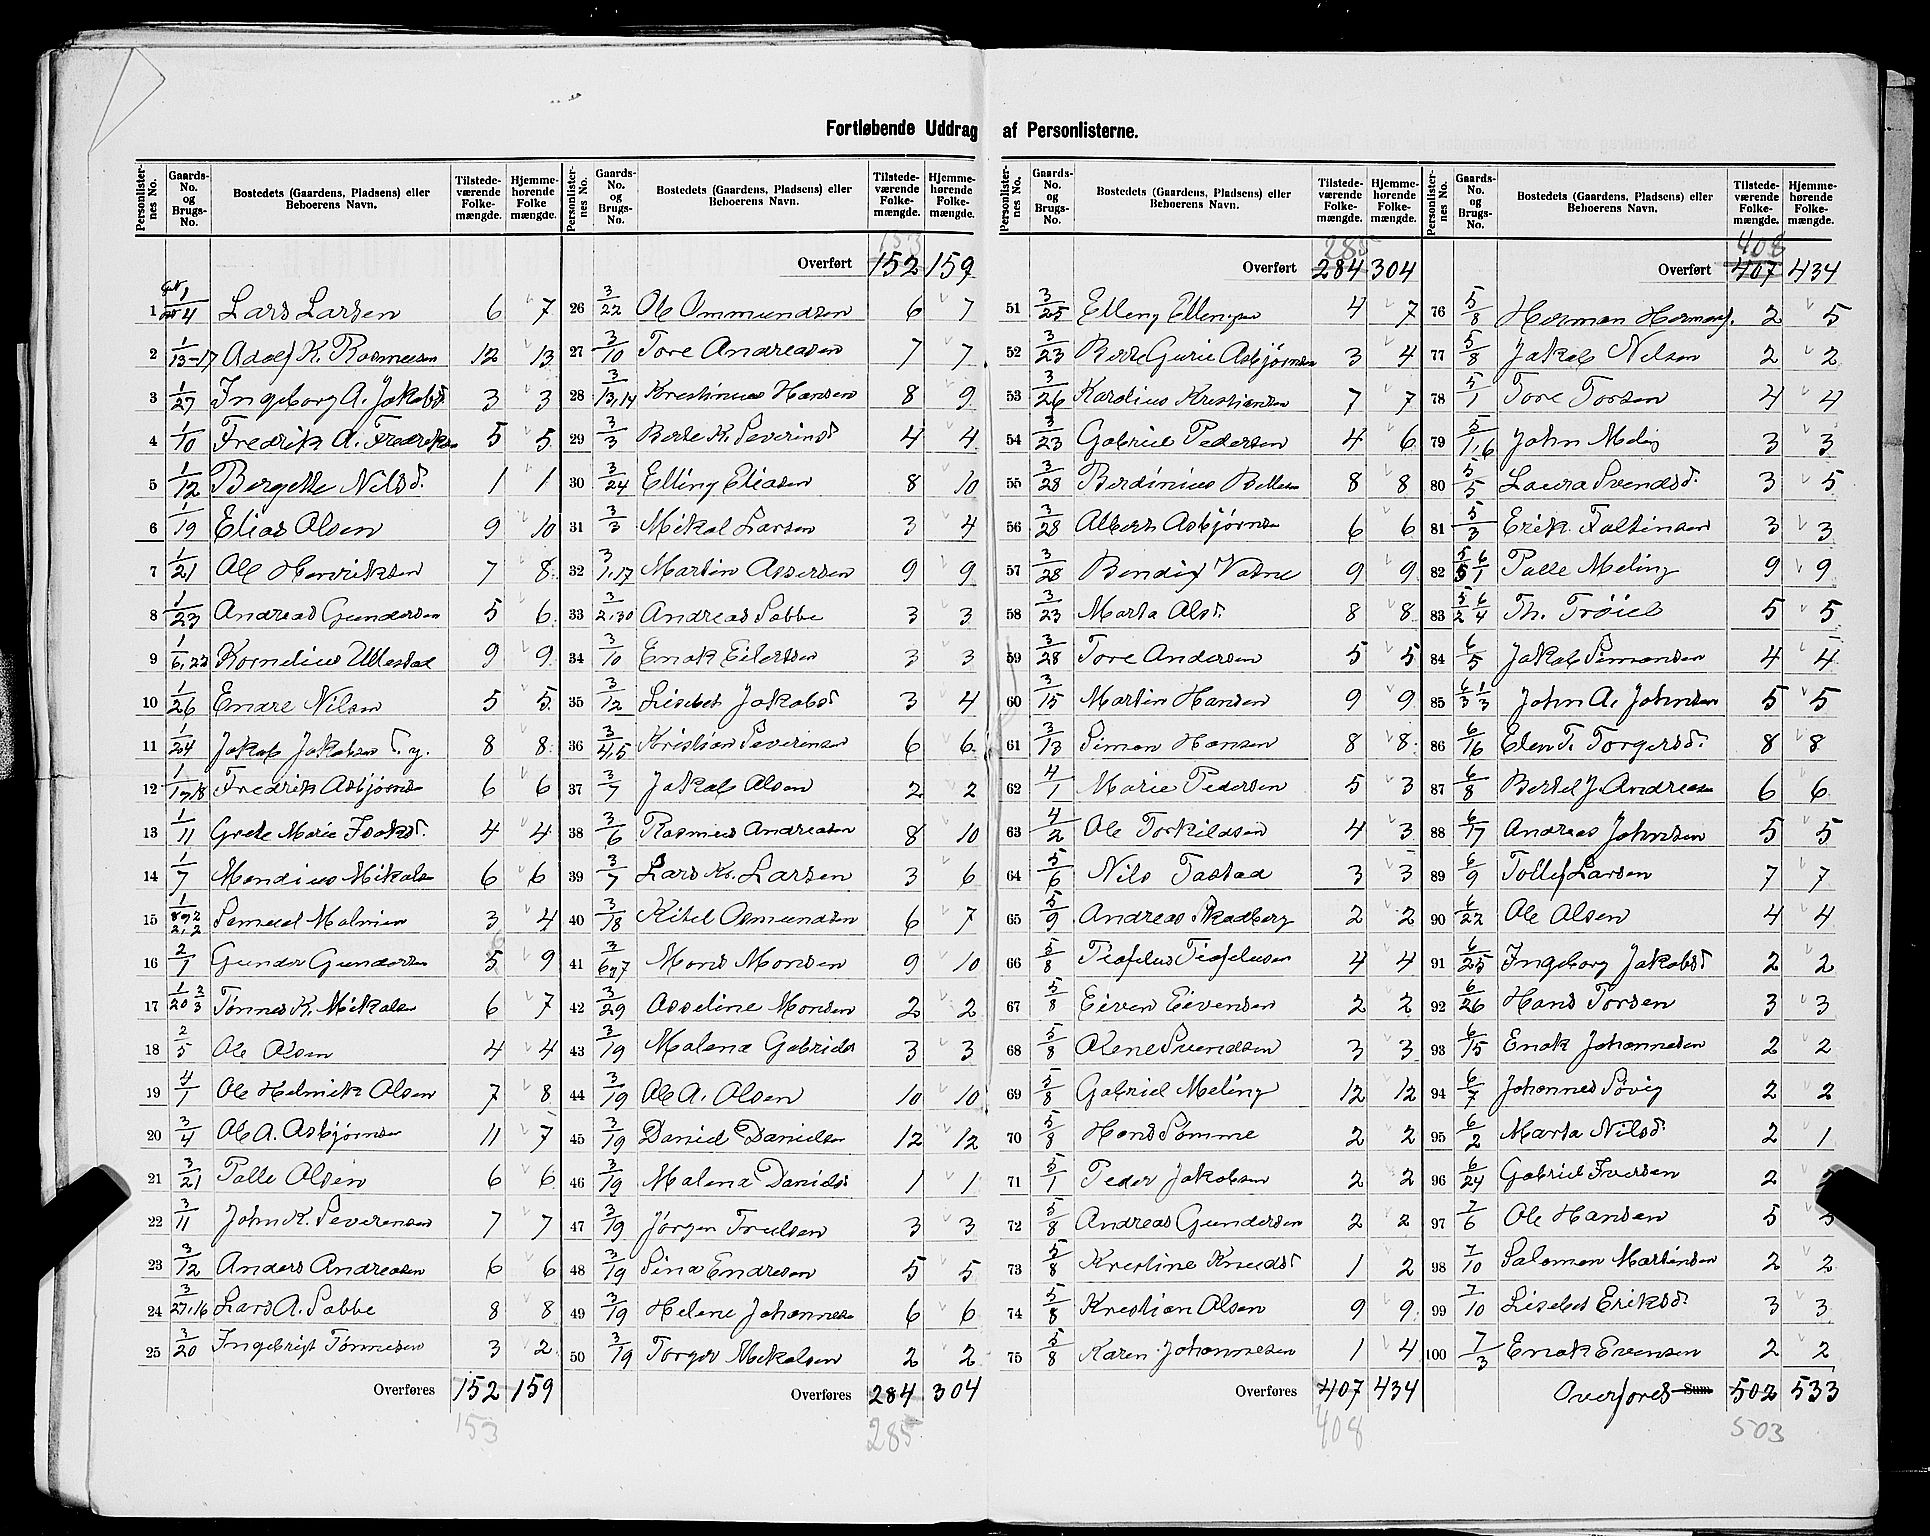 Fortløbende Uddrag af Personlisterne.
Personlisternes No. Gaards-No. og Brugs-No. Bostedets (Gaardens, Pladsens) eller Beboerens Navn. Tilstedeværende Folkemængde. Hjemmehørende Folkemængde.
1 1/4 Lars Larsen 6 7
2 1/13-17 Adolf K. Rasmussen 12 13
3 1/27 Ingeborg A. Jakobsd. 3 3
4 1/10 Fredrik A. Fredriksen 5 5
5 1/12 Bergitte Nilsd. 1 1
6 1/19 Elias Olsen 9 10
7 1/21 Ole Henriksen 7 8
8 1/23 Andreas Gundersen 5 6
9 1/6,22 Kornelius Ullestad 9 9
10 1/26 Endre Nilsen 5 5
11 1/24 Jakob Jakobsen T. y. 8 8
12 1/17,18 Fredrik Asbjørns 6 6
13 1/11 Grete Marie Isaksd. 4 4
14 1/7 Mondius Mikals 6 6
15 1/8 og 2 2,2 Samuel Malmin 3 4
16 2/1 Gunder Gundersen 5 6 9
17 1/20 2/3 Tønnes K. Mikalsen 6 7
18 2/5 Ole Olsen 4 4
19 4/1 Ole Helmik Olsen 7 8
20 3/4 Ole A. Asbjørnsen 11 7
21 3/21 Palle Olsen 6 6
22 3/11 John K. Severensen 7 7
23 3/12 Anders Andreasen 6 6
24 3/27,16 Lars A. Sabbe 8 8
25 3/20 Ingebrigt Tønnesen 3 2
Overføres 152 159
153
153
Overført 152 159
26 3/22 Ole Ommundsen 6 7
27 3/10 Tore Andreasen 7 7
28 3/13,14 Kristinius Hansen 8 9
29 3/3 Berte K. Severinsd. 4 4
30 3/24 Elling Eliasen 8 10
31 3/3 Mikal Larsen 3 4
32 3/1,17 Martin Assersen 9 9
33 3/2,30 Andreas Sabbe 3 3
34 3/10 Enok Eilertsen 3 3
35 3/12 Lisebet Jakobsd 3 4
36 3/4,5 Kristian Severinsen 6 6
37 3/7 Jakob Olsen 2 2
38 3/6 Rasmus Andreasen 8 10
39 3/7 Lars Kr. Larsen 3 6
40 3/18 Kitel Osmundsen 6 7
41 3/6 og 7 Mons Monsen 9 10
42 3/29 Asseline Monsen 2 2
43 3/19 Malena Gabriels 3 3
44 3/19 Ole A. Olsen 10 10
45 3/19 Daniel Danielsen 12 12
46 3/19 Malena Daniels 1 1
47 3/19 Jørgen Trulsen 3 3
48 3/19 Sina Endresen 5 5
49 3/19 Helene Johannesen 6 6
50 3/19 Torger Mikalsen 2 2
Overføres 284 304
285
285
Overført 284 304
51 3/25 Elling Ellingsen 4 7
52 3/23 Berte Gurie Asbjørnsen 3 4
53 3/26 Karolius Kristiansen 7 7
54 3/23 Gabriel Pedersen 4 6
55 3/28 Berdinius Bellesen 8 8
56 3/28 Albert Asbjørnsen 6 6
57 3/28 Bendix Vatne 9 9
58 3/23 Marta Olsd. 8 8
59 3/28 Tore Andersen 5 5
60 3/15 Martin Hansen 9 9
61 3/13 Simon Hansen 8 8
62 4/1 Marie Pedersen 5 3
63 4/2 Ole Torkildsen 4 3
64 5/6 Nils Tastad 3 3
65 5/9 Andreas Skadberg 2 2
66 5/8 Tiofelus Tiofelusen 4 4
67 5/8 Eiven Eivensen 2 2
68 5/8 Olene Svendsen 3 3
69 5/8 Gabriel Meling 12 12
70 5/8 Hans Sømme 2 2
71 5/1 Peder Jakobsen 2 2
72 5/8 Andreas Gundersen 2 2
73 5/8 Kristine Knudsd 1 2
74 5/8 Kristian Olsen 9 9
75 5/8 Karen Johannesen 1 4
Overføres 407 434
408
408
Overført 407 434
76 5/8 Herman Hermans. 2 5
77 5/8 Jakob Nilsen 2 2
78 5/1 Tore Torsen 4 4
79 5/1,6 John Meling 3 3
80 5/5 Laura Svendsd. 3 5
81 5/3 Erik Faltinsen 3 3
82 5/5 6/1 Palle Meling 9 9
83 5/2 6/4 Th. Trøiel 5 5
84 6/5 Jakob Simonsen 4 4
85 6/3 1/3 John A. Johnsen 5 5
86 6/16 Elen T. Torgersd. 8 8
87 6/8 Bertel J. Andreasen 6 6
88 6/17 Andreas Johnsen 5 5
89 6/9 Tollef Larsen 7 7
90 6/22 Ole Olsen 4 4
91 6/25 Ingeborg Jakobsd 2 2
92 6/26 Hans Torsen 3 3
93 6/15 Enok Johannesen 2 2
94 6/7 Johannes Søvig 2 2
95 6/2 Marta Nilsd. 2 1
96 6/24 Gabriel Iversen 2
97 7/6 Ole Hansen 5 5
98 7/10 Salomon Martinsen 2 2
99 7/10 Lisebet Eriksd. 3 3
100 7/3 Enok Evensen 2 2
Overføres Sum 502 533
503